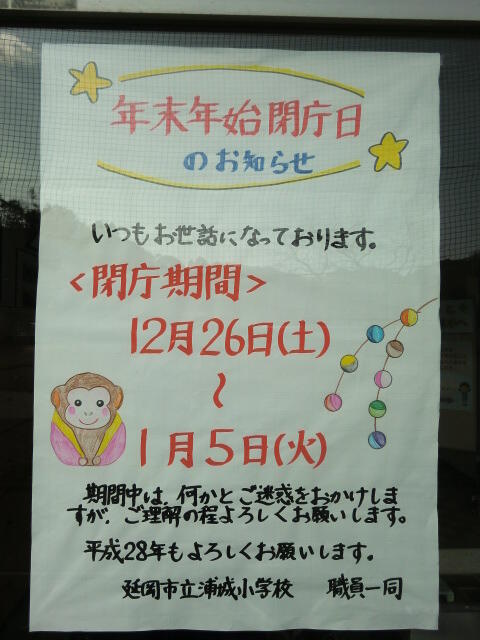 年末年始閉庁日
のお知らせ
いつもお世話になっております。
<閉庁期間>
12月26日(土)
~
1月5日(火)
期間中は、何かとご迷惑をおかけしま
すが、ご理解の程よろしくお願いします。
平成28年もよろしくお願いします。
延岡市立浦城小学校 職員一同